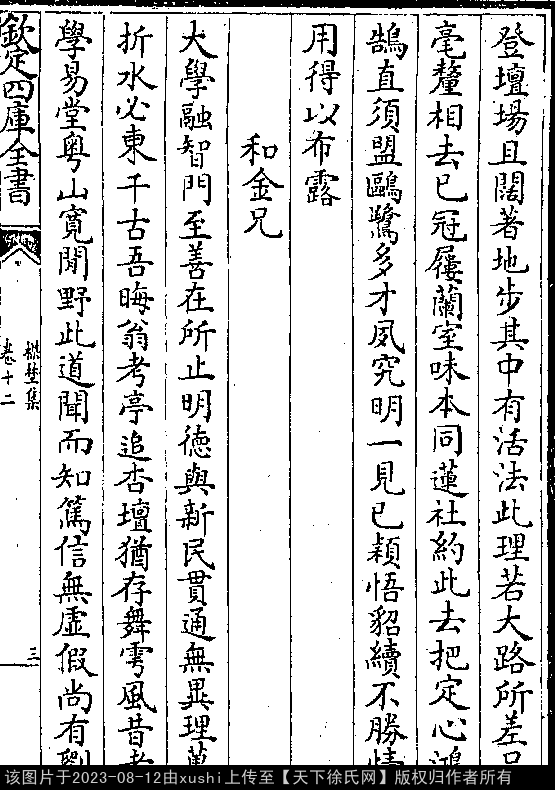 登壇場且闊著地步其中有活法此理若大路所差只
毫釐相去已冠屨蘭室味本同蓮社約此去把定心鴻
鵠直須盟鷗鷺多才夙究明一見已穎悟貂續不勝情
用得以布露
和金兄
大學融智門至善在所止明德與新民貫通無異理萬
折水必東千古吾晦翁考亭追杏壇猶存舞雩風昔者
學易堂粤山寛閒野此道聞而知篤信無虛假尚有劉
欽定四庫全書
樵埜集
卷十二
三
该图片于2023-08-12由xushi上传至【天下徐氏网】版权归作者所有